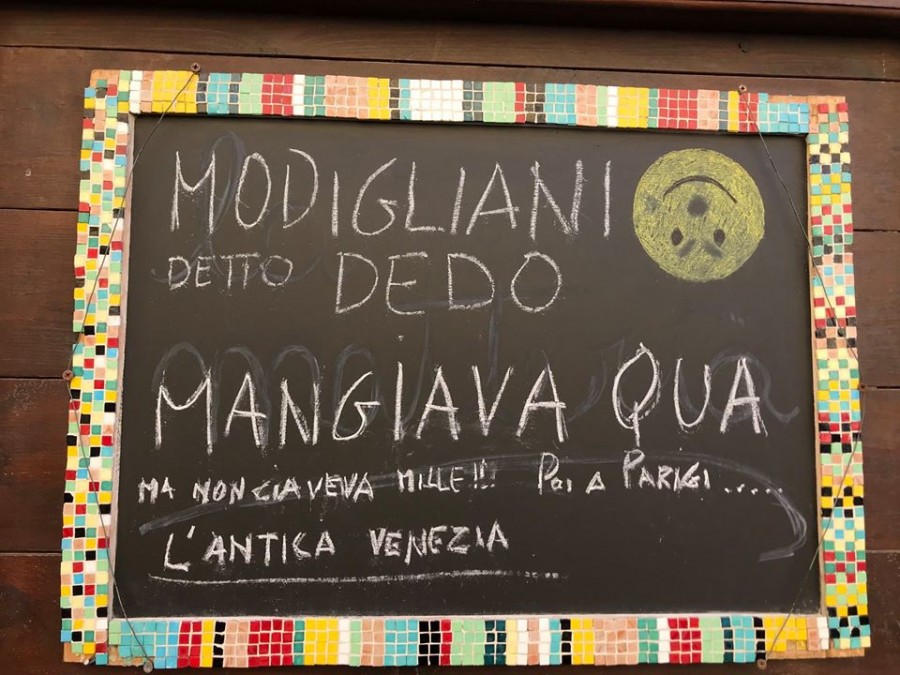 MODIGLIANI
DETTO DEDO
MANGIAVA QUA
MA NON CIAVEVA MILLE!!! POI A PARIGI.....
L'ANTICA VENEZIA